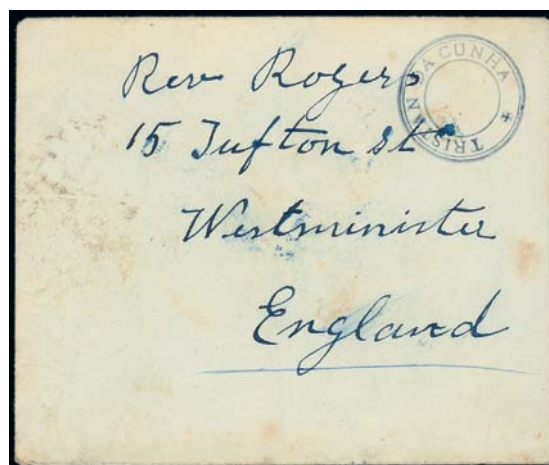 Rev Rogers
15 Tufton St
Westminister
England
TRISTAN DA CUNHA